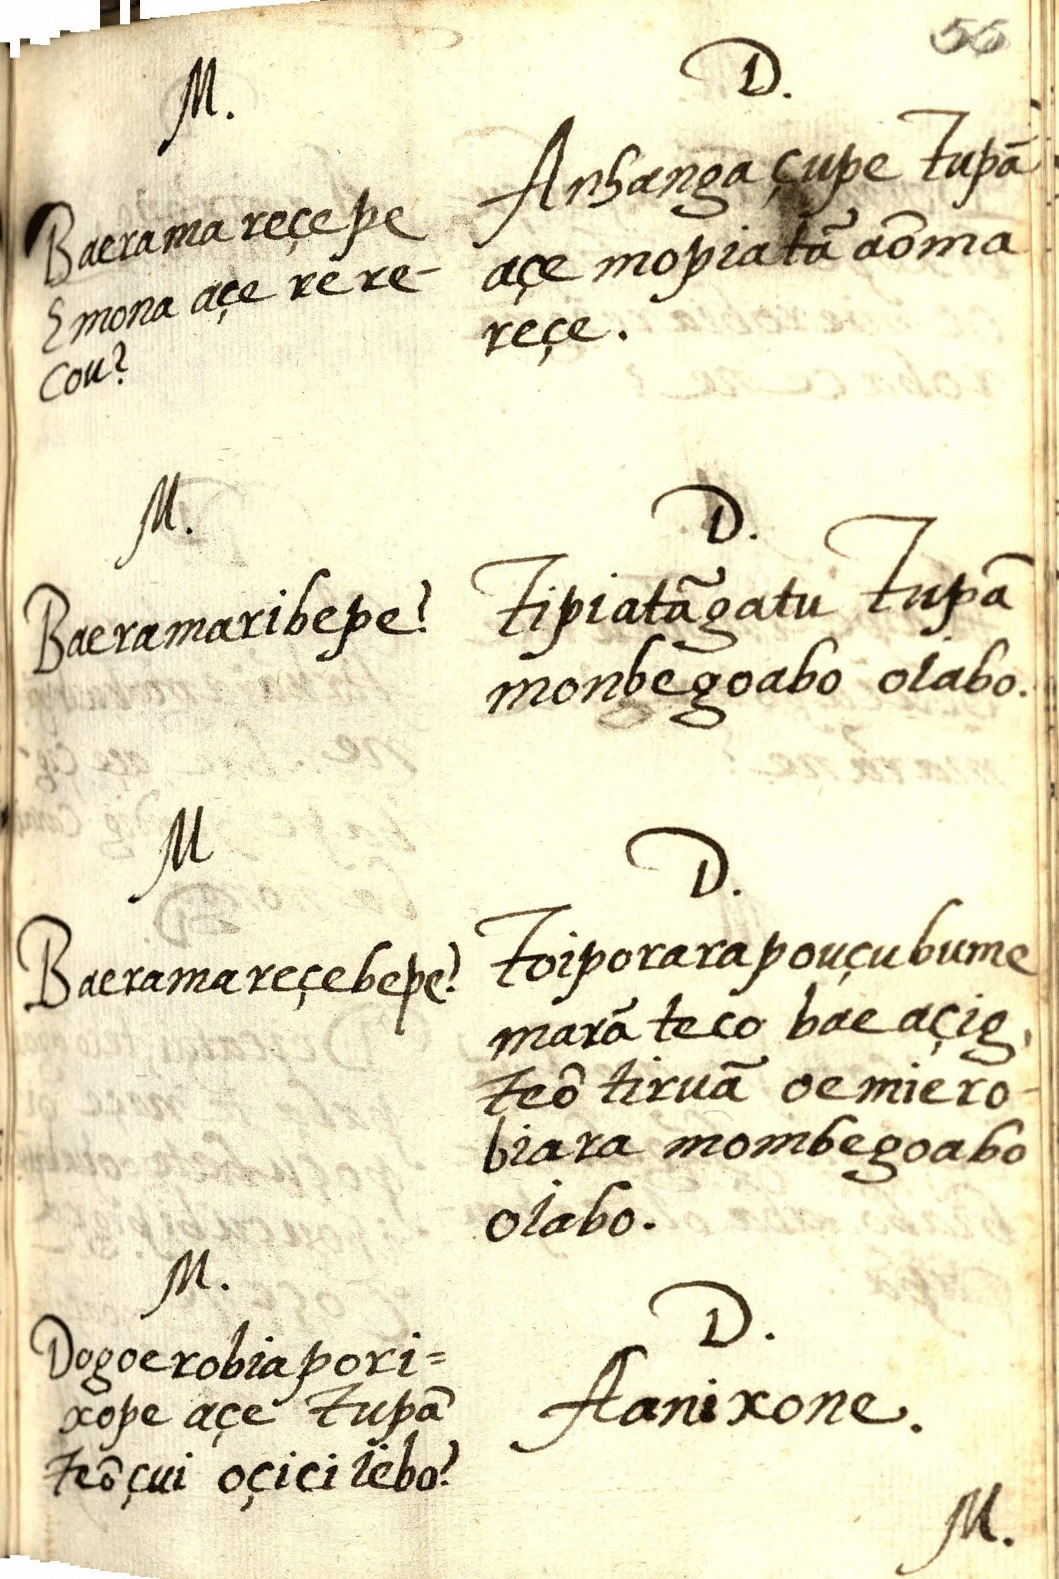 55
M.
Baerama reçe pe
Emona açe re re-
cou?
D.
Anhanga çupe Tupã
açe mopiatã aõma
reçe.
M.
Baeramaribepe?
D.
Tipiatãgatu Tupã
monbegoabo oiabo.
M
Baeramareçebepe?
D.
Toiporarapouçubume
marã teco bae açig,
teõ tiruã oemiero-
biara mombegoabo
oiabo.
M.
Dogoerobiapori=
xope açe Tupã
teõ çui oçiciiebo?
D.
Aanixone.
M.